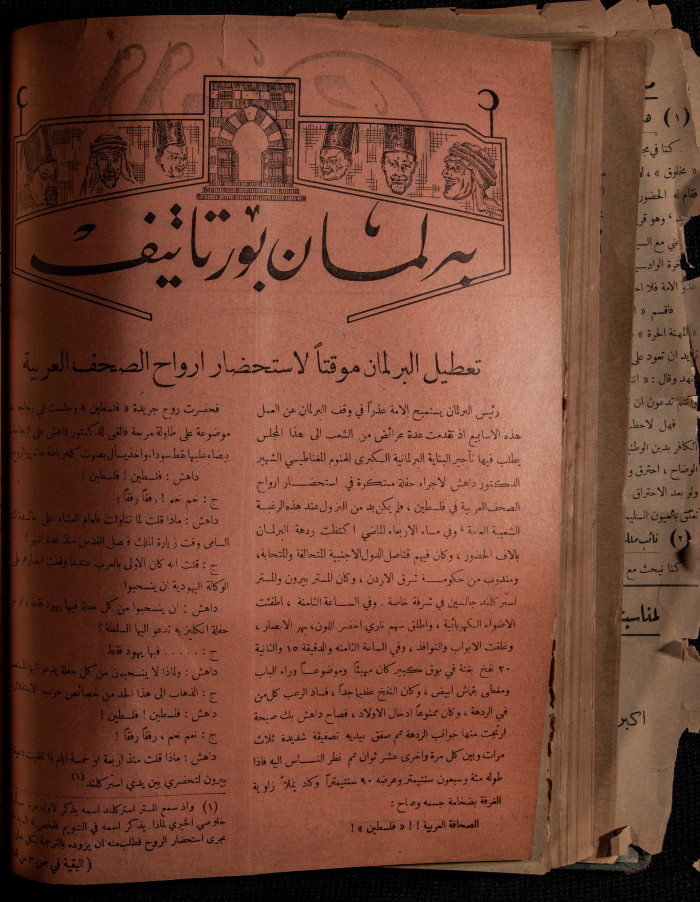 برلمان بورتاتيف
تعطيل البرلمان موقتاً لاستحضار ارواح الصحف العربية
رئيس البرلمان يستميح الامة عذراً في وقف البرلمان عن العمل
هذه الاسابيع اذ تقدمت عدة عرائض من الشعب الى هذا المجلس
يطلب فيها تأجير البناية البرلمانية الكبرى للمنوم المغناطيسي الشهير
الدكتور داهش لاجراء حفلة مبتكرة في استحضار ارواح
الصحف العربية في فلسطين، فلم يكن بد من النزول عند هذه الرغبة
الشعبية العامة، وفي مساء الاربعاء الماضي اكتظت ردهة البرلمان
بآلاف الحضور، وكان فيهم قناصل الدول الاجنبية المتحالفة والمتحابة،
ومندوب من حكومة شرق الاردن، وكان المستر بيرون والمستر
استركلند جالسين في شرفة خاصة. وفي الساعة الثامنة، اطفئت
الاضواء الكهربائية، واطلق سهم ناري اخضر اللون، بهر الابصار،
وغلقت الابواب والنوافذ، وفي الساعة الثامنة والدقيقة ١٥ والثانية
٢٠ نفخ بغتة في بوق كبير كان مهيئاً وموضوعاً وراء الباب
ومغطى بقماش ابيض، وكان النفخ عظيما جداً، فساد الرعب كل من
في الردهة، وكان ممنوعاً ادخال الاولاد، فصاح داهش بك صيحة
ارتجت منها جوانب الردهة ثم صفق بيديه تصفيقة شديدة ثلاث
مرات وبين كل مرة واخرى عشر ثوان ثم نظر النساس اليه فاذا
طوله مئة وسبعون سنتيمتر وعرضه ٩٠ سنتيمتراً وكاد يملأ زاوية
الغرفة بضخامة جسمه وصاح:
الصحافة العربية!! «فلسطين»!
فحضرت روح جريدة «فلسطين» وجلست في زجاجة
موضوعة على طاولة مربعة فالقى للدكتور داهش على
بيضاء عليها نقط سوداء واخذ يسأل بصوت كله رباطة جأش
داهش: فلسطين! فلسطين!
ج: نعم نعم! رفقاً رفقاً!
داهش: ماذا قلت لما تناولت طعام العشاء على مائدة
السامي وقت زيارة لذلك فصل القدس منذ عدة اشهر؟
ج: قلت انه كان الاولى بالعرب عندما وقعت ابصارهم على
الوكالة اليهودية ان ينسحبوا
داهش: ان ينسحبوا من كل حفلة فيها يهود فقط، او من
حفلة انكليزيه تدعو اليها السلطة؟
ج: . . . . . . فيها يهود فقط
داهش: ولماذا لا ينسحبون من كل حفلة يدعو اليها
ج: الذهاب الى هذا الحد من خصائص حزب الاستقلال
داهش: فلسطين! فلسطين!
ج: نعم نعم، رفقاً رفقاً!
داهش: ماذا قلت منذ اربعة او خمسة ايام لما تلقيت دعوة
بيرون لتحضري بين يدي استركلند (١)
(١) واذ سمع المستر استركلند اسمه يذكر لاول مرة
خلوصي الخيري لماذا يذكر اسمه في التنويم فلخص
مجرى استحضار الروح فطلب منه ان يزوده بالترجمة
(البقية في ص ٣
(١)
كنا في
« مخلوق »
فقام له الحضور
وهو
مع
الامة فلا
فاقسم
« المهنة الحرة »
ان تعود على
وقال:
تدعون ان
فهل لاحظ
الكافر بدين
الوضاح، احترق
ولو بعد الاحتراق
(٢) نائب
كنا نبحث مع